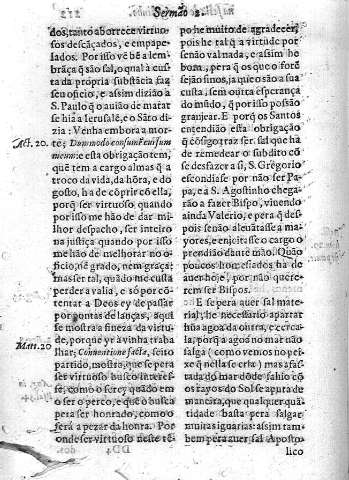 212 Sermão 2.
dos, tanto aborrece virtuo-
sos descãçados, e empape-
lados. Por isso vẽ bẽ a lem-
brãça q̃ são sal, o qual à cus-
ta da própria substãcia faz
seu oficio, e assim dizião a
S. Paulo q̃ o avião de matar
se hia a Ierusalẽ, e o Sãto di-
zia: Vẽnha embora a mor-
Act. 20. te; Dummodo consummem cursum
meum: e esta obrigação tem,
quẽ tem a cargo almas q̃ a
troco da vida, da hõra, e do
gosto, ha de cõprir cõ ella,
porq̃ ser virtuoso, quando
por isso me hão de dar mi-
lhor despacho, ser inteiro
na justiça quando por isso
me hão de melhorar no o-
ficio, nẽ grado, nem graça;
mas ser tal, quãdo me custa
perder a valia, e só por cõ-
tentar a Deos ey de passar
por pontas de lanças, aqui
se mostra a fineza da virtu-
de, porque yr à vinha traba
Matt. 20 lhar; Conuentione facta, feito
partido, mostra, que se pera
ser virtuoso busco interes-
se, como o serey quãdo em
o ser o perco, e que o busco
pera ser honrado, como o
serà a pezar da honra. Por
onde ser virtuoso neste tẽ-
po he muito de agradecer,
pois he tal q̃ a virtude por
senão val nada, e assim he
bom, pera q̃ os que o forẽ
sejão finos, ja que o são a sua
custa, sem outra esperança
do mũdo, q̃ por isso possão
granjear. E porq̃ os Santos
entendião esta obrigação
q̃ cõsigo traz ser sal que ha
de remedear o subdito cõ
se desfazer a si, S. Gregorio
escondia se por não ser Pa-
pa, e a S. Agostinho chega-
rão a fazer Bispo, vivendo
ainda Valerio, e pera q̃ des-
pois senão aleuãtasse a ma-
yores, e enjeitasse o cargo o
prendião dante mão. Quão
poucos Ioneciados ha de
auer hoje, por não quere-
rem ser Bispos.
E se pera auer sal mate-
rial, he necessario apartar
hũa agoa da outra, e cerca-
la, porq̃ a agoa no mar não
salga (como vemos no pei-
xe q̃ nella se cria) mas afas-
tada do mar dõde sahio cõ
os rayos do Sol se apura de
maneira, que qualquer quã
tidade basta pera salgar
muitas iguarias: assim tam-
bem pera auer sal Aposto
lico
DD4